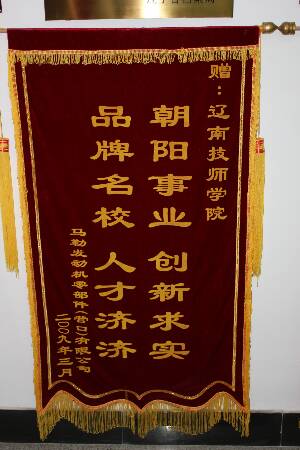 赠：辽南技师学院
朝阳事业 创新求实
品牌名校 人才济济
马勒发动机零部件(营口)有限公司
二00九年三月